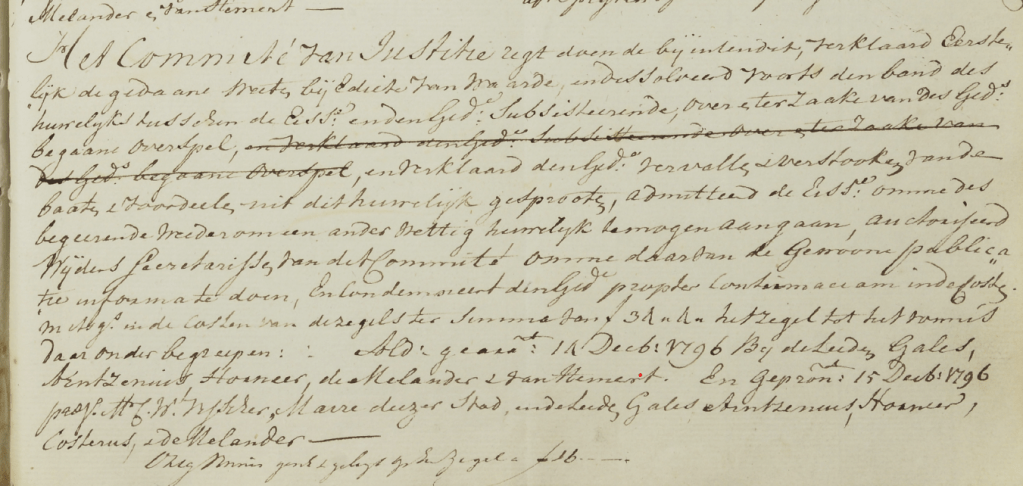 Melander & van Hemert
Het Committé van Justitie regt doende bij intendit, verklaard Eerste-
lijk de gedaane weete, bij Edicte van waarde, en dissolveerd voorts den band des
huwelijks tusschen de Eissr. en den Gedr. Subsisteerende, over & ter zaake van Des Gedrs.
begaane overspel, en verklaard den Gedr. Subsisteerende over & ter zaake van
des Gedrs. begaane overspel, en verklaard den Gedr. vervalle, & verstooke, van de
baate, & voordeele, uit dit huwelijk gesproote, admitteerd de Eissr. omme des
begeerende wederom een ander wettig huwelijk te mogen aangaan, auctoriseerd
wijders Secretarisse, van dit Committé omme daar van de Gewoone publica-
tie in forma te doen, En Condemneert den Gedr. propter Contumaciam in de Coste,
mitsgs. in de Costen van de zegels ter Somme van f het zegel tot het vonnis
daar onder begreepen: Ald: geaest: 14 Decb: 1796 Bij de Leide, Gales,
Arntzenius, Hoeneer, de Melander & van Hemert. En Gepron: 15 Decb: 1796
pres. Mr. W. Visscher, Maire deezer Stad, en de Leide, Gales, Arntzenius, Hoeneer,
Costerus, & de Melander
zegel f 16.--